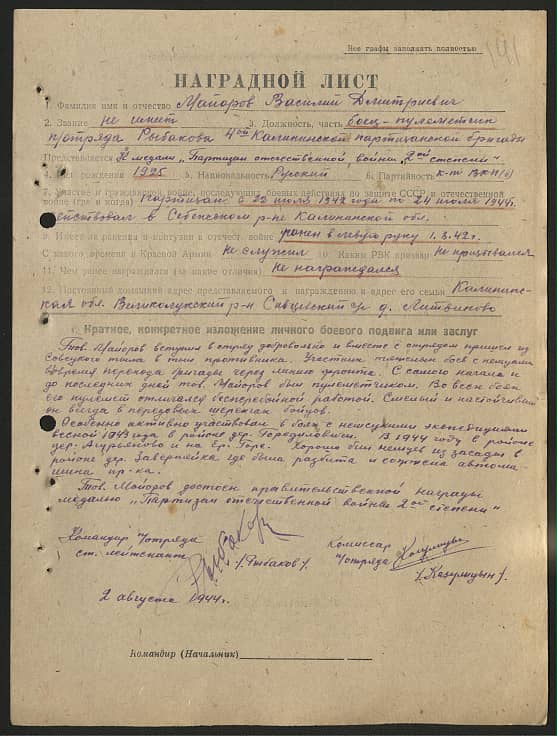 Все графы заполнять полностью
191
НАГРАДНОЙ ЛИСТ
1. Фамилия имя и отчество Майоров Василий Дмитриевич
2. Звание не имит 3. Должность, часть боец-пулеметчик
отряда Рыбакова 4ой Калининской партизанской бригады
Представляется К медали „Партизан отечественной войны 2ой степени"
4. Год рождения 1925 5. Национальность Русский 6. Партийность к-т ВКП(б)
7. Участие в гражданской войне, последующих боевых действиях по защите СССР и отечественной
войне (где и когда) Партизан с 22 июля 1942 года по 24 июля 1944г.
действовал в Себежском р-не Калининской обл.
9. Имеет ли ранения и контузии в отечест. войне ранен в левую руку 1.8.42г.
С какого времени в Красной Армии не служил 10. Каким РВК призван не призывался
11. Чем ранее награждался (за какие отличия) не награждался
12. Постоянный домашний адрес представляемого к награждению и адрес его семьи Калининс-
кая обл. Великолукский р-н д. Литвиново
Краткое, конкретное изложение личного боевого подвига или заслуг
Тов. Майоров вступил в отряд добровольно и вместе с отрядом пришел из
Советского тыла в тыл противника. Участник тяжелых боев с немцами
вовремя перехода бригады через линию фронта. С самого начала и
до последних дней тов. Майоров был пулеметчиком. Во всех боях
его пулемет отличался бесперебойной работой. Смелый и настойчивый
он всегда в передовых шеренгах бойцов.
Особенно активно участвовал в боях с немецкими экспедициями
весной 1943 года в районе дер. В 1944 году в районе
дер. и на Хорошо бил немцев из засады в
районе дер. где была разбита и сожжена автома-
шина пр-ка.
Тов. Майоров достоин правительственной награды
медалью „Партизан отечественной войны 2ой степени"
Командир отряда
ст. лейтенант /Рыбаков/.
Комиссар
отряда
2 августа 1944г.
Командир (Начальник)